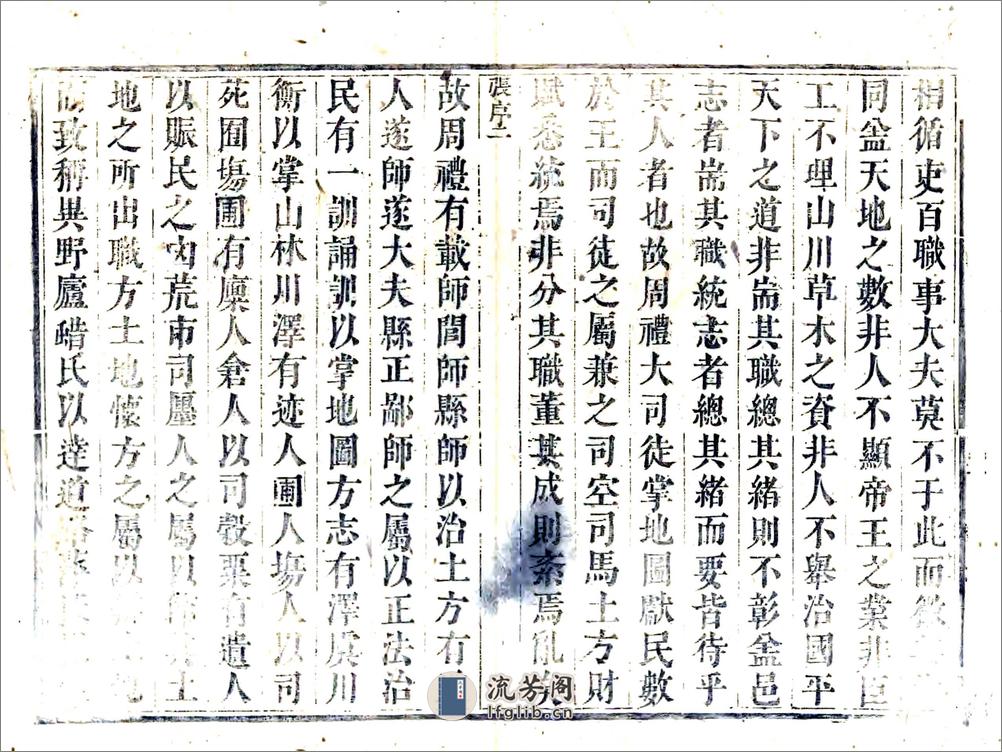 相循吏百職事大夫莫不于此而
同盆天地之數非人不顯帝王之業非臣
工不理山川草木之資非人不舉治國平
天下之道非耑其職總其緒則不彰盆邑
志者耑其職統志者總其緒而要皆待乎
其人者也故周禮大司徒掌地圖獻民數
於王而司徒之屬兼之司空司馬土方財
賦悉統焉非分其職董其成則紊焉亂矣
張序二
故周禮有載師閭師縣師以治土方有
人遂師遂大夫縣正鄙師之屬以正法治
民有一訓誦訓以掌地圖方志有澤虞川
衡以掌山林川澤有迹人囿人場人以司
苑囿場圃有廩人倉人以司穀粟有遺人
以賑民之凶荒市司廛人之屬以土
地之所出職方土地懷方之屬以
致稱異野廬蜡氏以達道
流芳阁
lfglib.cn